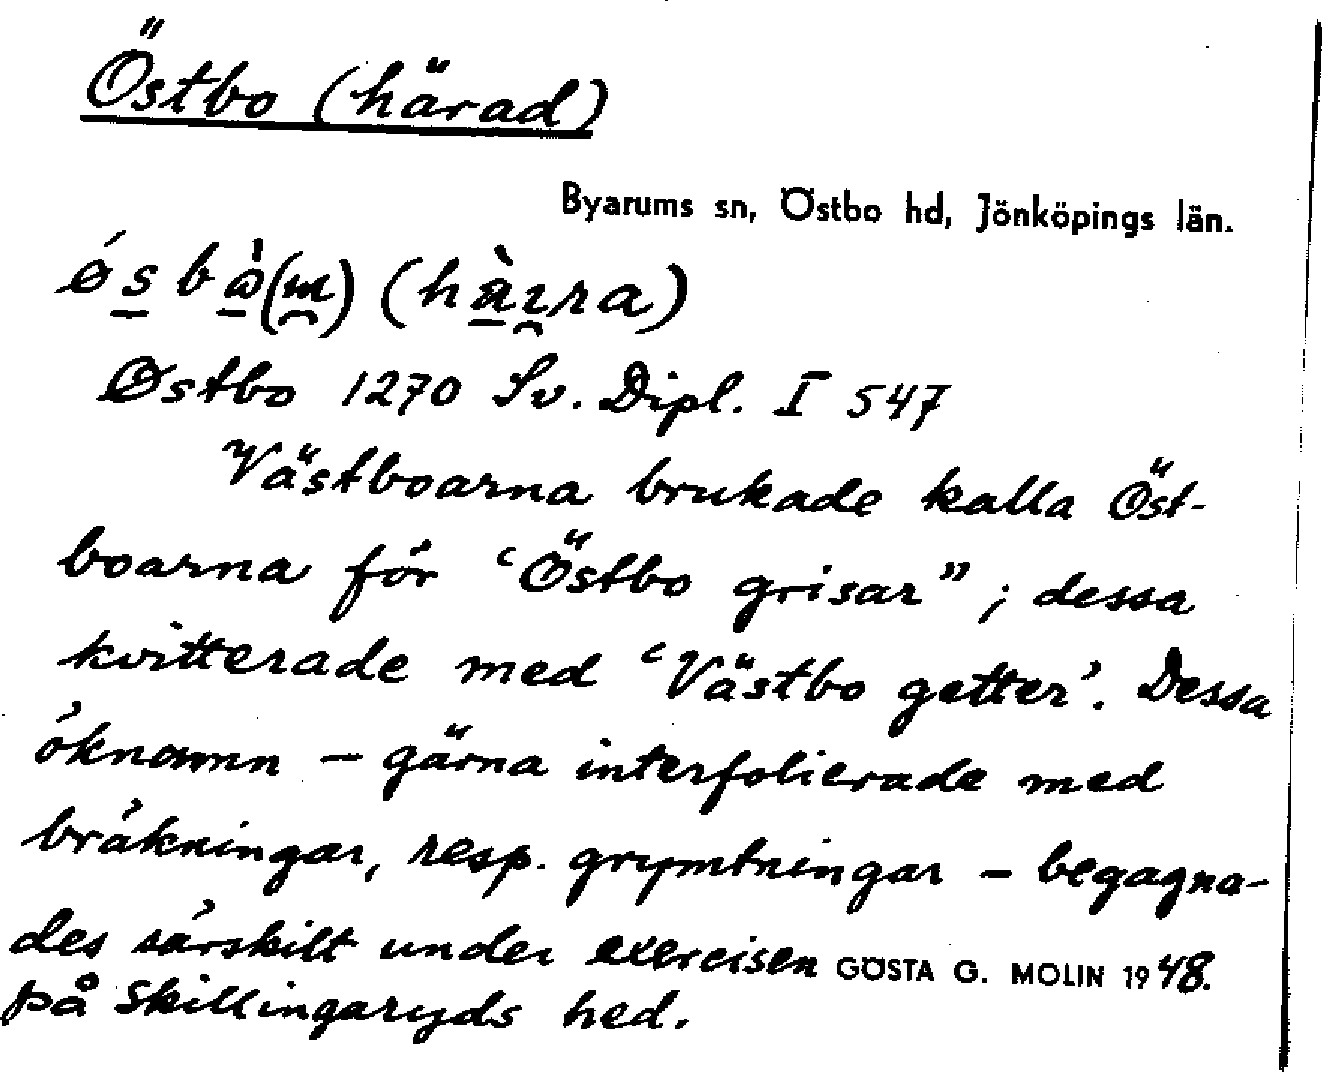 Östbo (härad)
Byarums sn, Östbo hd, Jönköpings län.
Østbo 1270 Sv. Dipl. I 547
Västboarna brukade kalla Öst-
boarna för ‘Östbo grisar”; dessa
kvitterade med ‘Västbo getter’. Dessa
öknamn – gärna interfolierade med
bräkningar, resp. grymtningar – begagna-
des särskilt under exercisen GÖSTA G. MOLIN 1948.
på Skillingaryds hed.